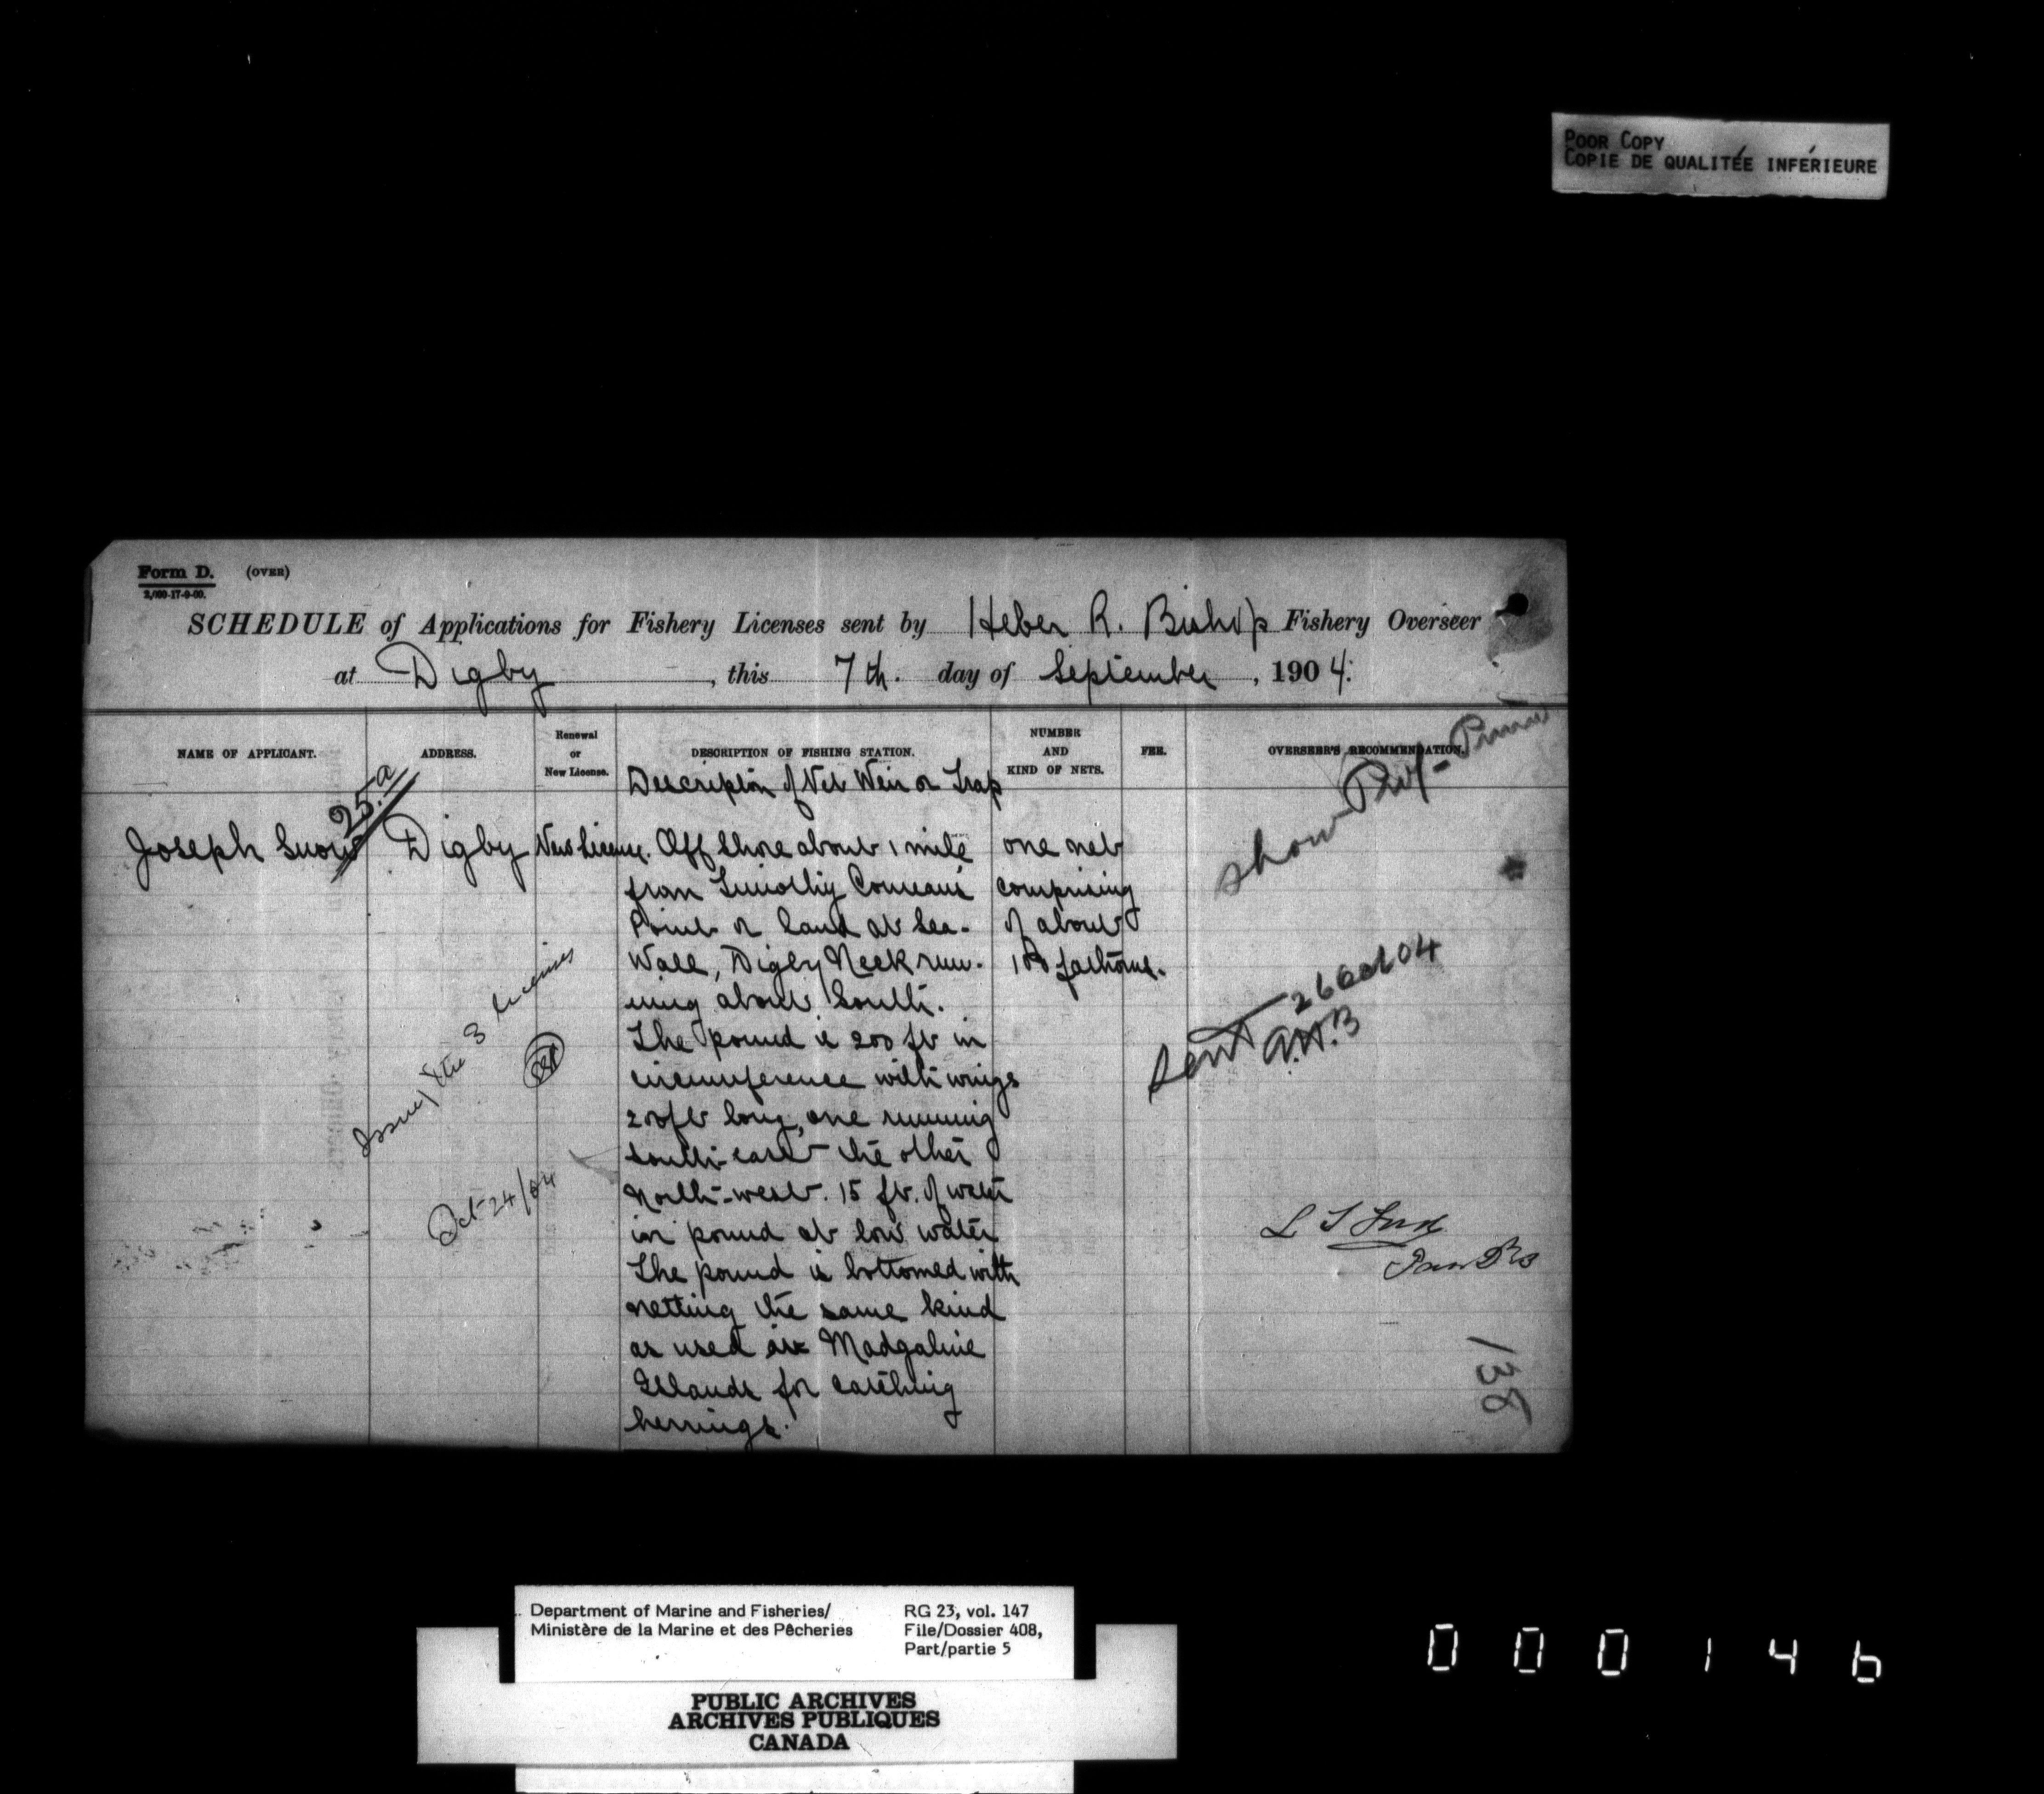 POOR COPY
COPIE DE QUALITÉE INFÉRIEURE
Form D. (OVER)
2,000-17-9-00.
SCHEDULE of Applications for Fishery Licenses sent by Heber R. Bishop Fishery Overseer
at Digby, this 7th. day of September, 1904.
NAME OF APPLICANT. ADDRESS. Renewal or New License. DESCRIPTION OF FISHING STATION. NUMBER AND KIND OF NETS. FEE. OVERSEER'S RECOMMENDATION.
Description of Net Weir or Trap
show Prof-Prince
25.a
Joseph Snow Digby New License. Off shore about 1 mile one net
from Timothy Comeau's comprising
Point or land at Sea- of about
Wall, Digby Neck run- 100 fathoms.
ning about South.
The pound is 200 ft in
circumference with wings
200 ft long, one running
South-east the other
North-west. 15 ft. of water
in pound at low water
The pound is bottomed with
netting the same kind
as used at Madgaline
Islands for catching
herrings.
Issue the 3 licenses
Oct 24/04
Sent 26 Oct 04
A.H.B
138
Department of Marine and Fisheries/
Ministère de la Marine et des Pêcheries
RG 23, vol. 147
File/Dossier 408,
Part/partie 5
PUBLIC ARCHIVES
ARCHIVES PUBLIQUES
CANADA
000146